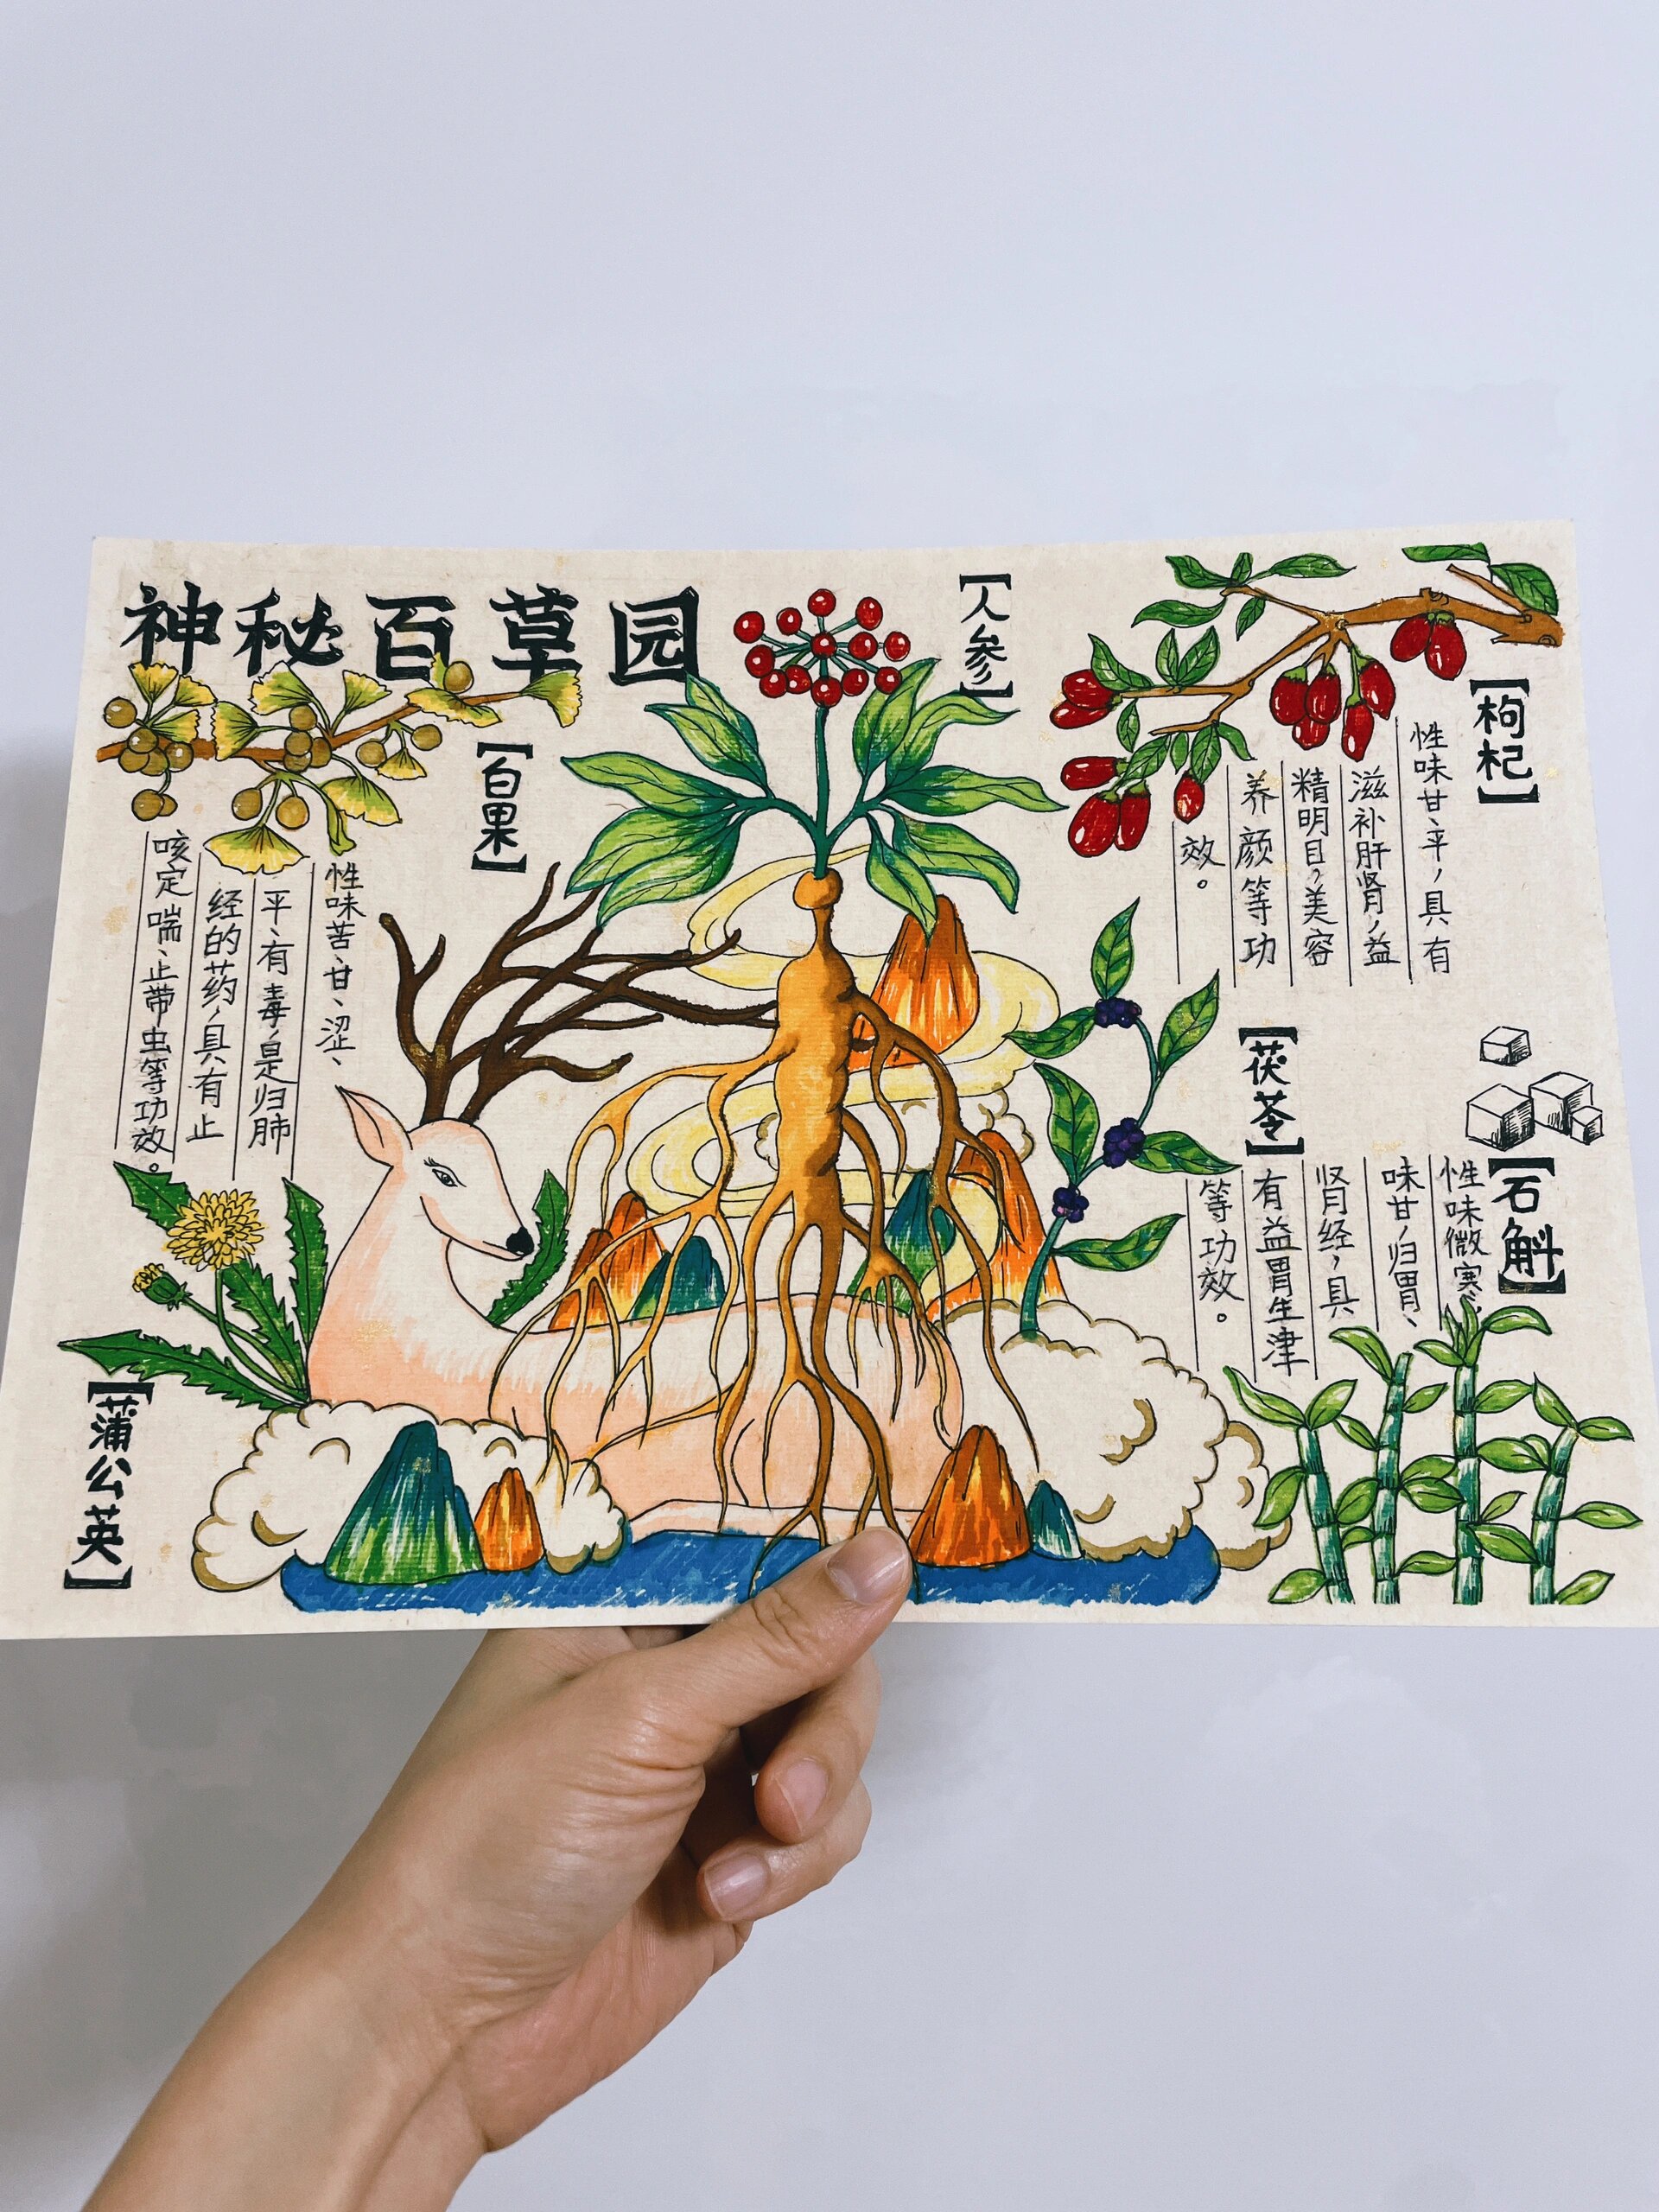 神秘百草园
【人参】
【枸杞】
性味甘、平，具有
滋补肝肾，益
精明目，美容
养颜等功
效。
【白果】
性味苦、甘、涩、
平、有毒，是归肺
经的药，具有止
咳定喘、止带虫等功效。
【茯苓】
【石斛】
性味微寒，
味甘，归胃、
肾经，具
有益胃生津
等功效。
【蒲公英】